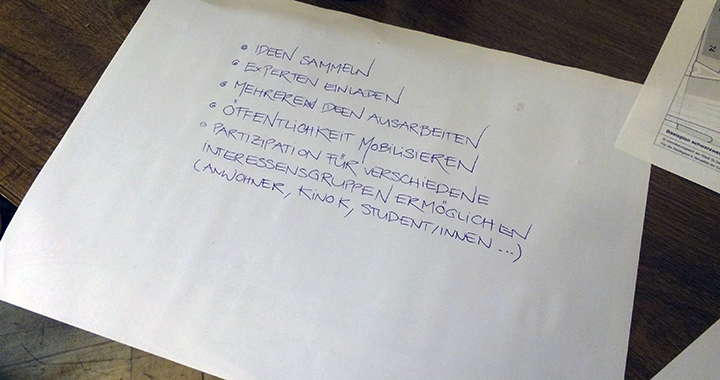 • IDEEN SAMMELN
• EXPERTEN EINLADEN
• MEHRERE IDEEN AUSARBEITEN
• ÖFFENTLICHKEIT MOBILISIEREN
• PARTIZIPATION FÜR VERSCHIEDENE
INTERESSENSGRUPPEN ERMÖGLICHEN
(ANWOHNER, KINOK, STUDENT/INNEN ...)